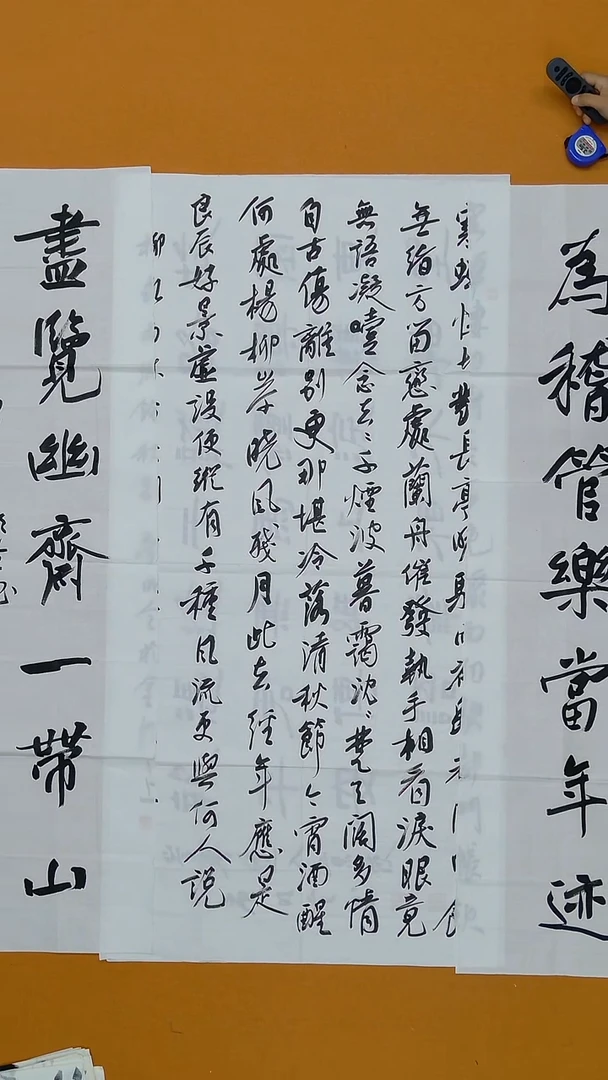 為稽管樂當年迹
長亭
無緒方留戀處蘭舟催發執手相看淚眼竟
無語凝噎念去〻千煙波暮靄沈〻楚天闊多情
自古傷離別更那堪冷落清秋節今宵酒醒
何處楊柳岸曉風殘月此去經年應是
良辰好景虛設便縱有千種風流更與何人說
盡覽幽齋一帶山